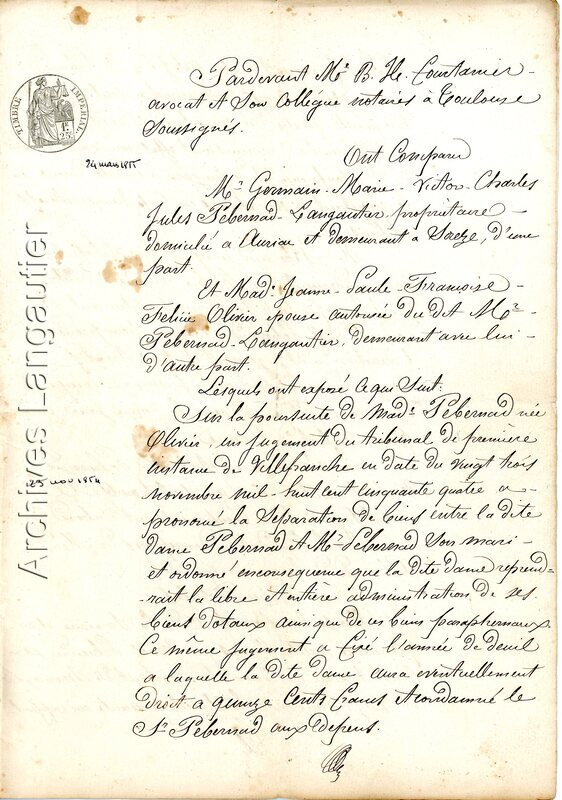 Pardevant Me B. H. Courtanier
avocat et son collègue notaires à Toulouse
soussignés.
TIMBRE IMPERIAL
1F
25c
24 mars 1855
Ont Comparu
Mr Germain-Marie-Victor-Charles
Jules Pebernad-Langautier, propriétaire
domicilié à Auriac et demeurant à Soreze, d'une
part.
Et Made Jeanne-Paule-Françoise-
Félicie Olivier épouse autorisée du dit Mr
Pebernad-Langautier, demeurant avec lui
d'autre part.
Lesquels ont exposé ce qui suit.
Sur la poursuite de Made Pebernad née
Olivier, un jugement du tribunal de première
instance de Villefranche en date du vingt trois
23 nov 1854
novembre mil-huit cent cinquante quatre a
prononcé la séparation de biens entre la dite
dame Pebernad et Mr Pebernad son mari
et ordonné en conséquence que la dite dame reprend-
rait la libre et entière administration de ses
biens dotaux ainsi que de ses biens paraphernaux
Ce même jugement a fixé l'année de deuil
à laquelle la dite dame aura eventuellement
droit à quinze cents francs et condamné le
Sr Pebernad aux depens.
Archives Langautier